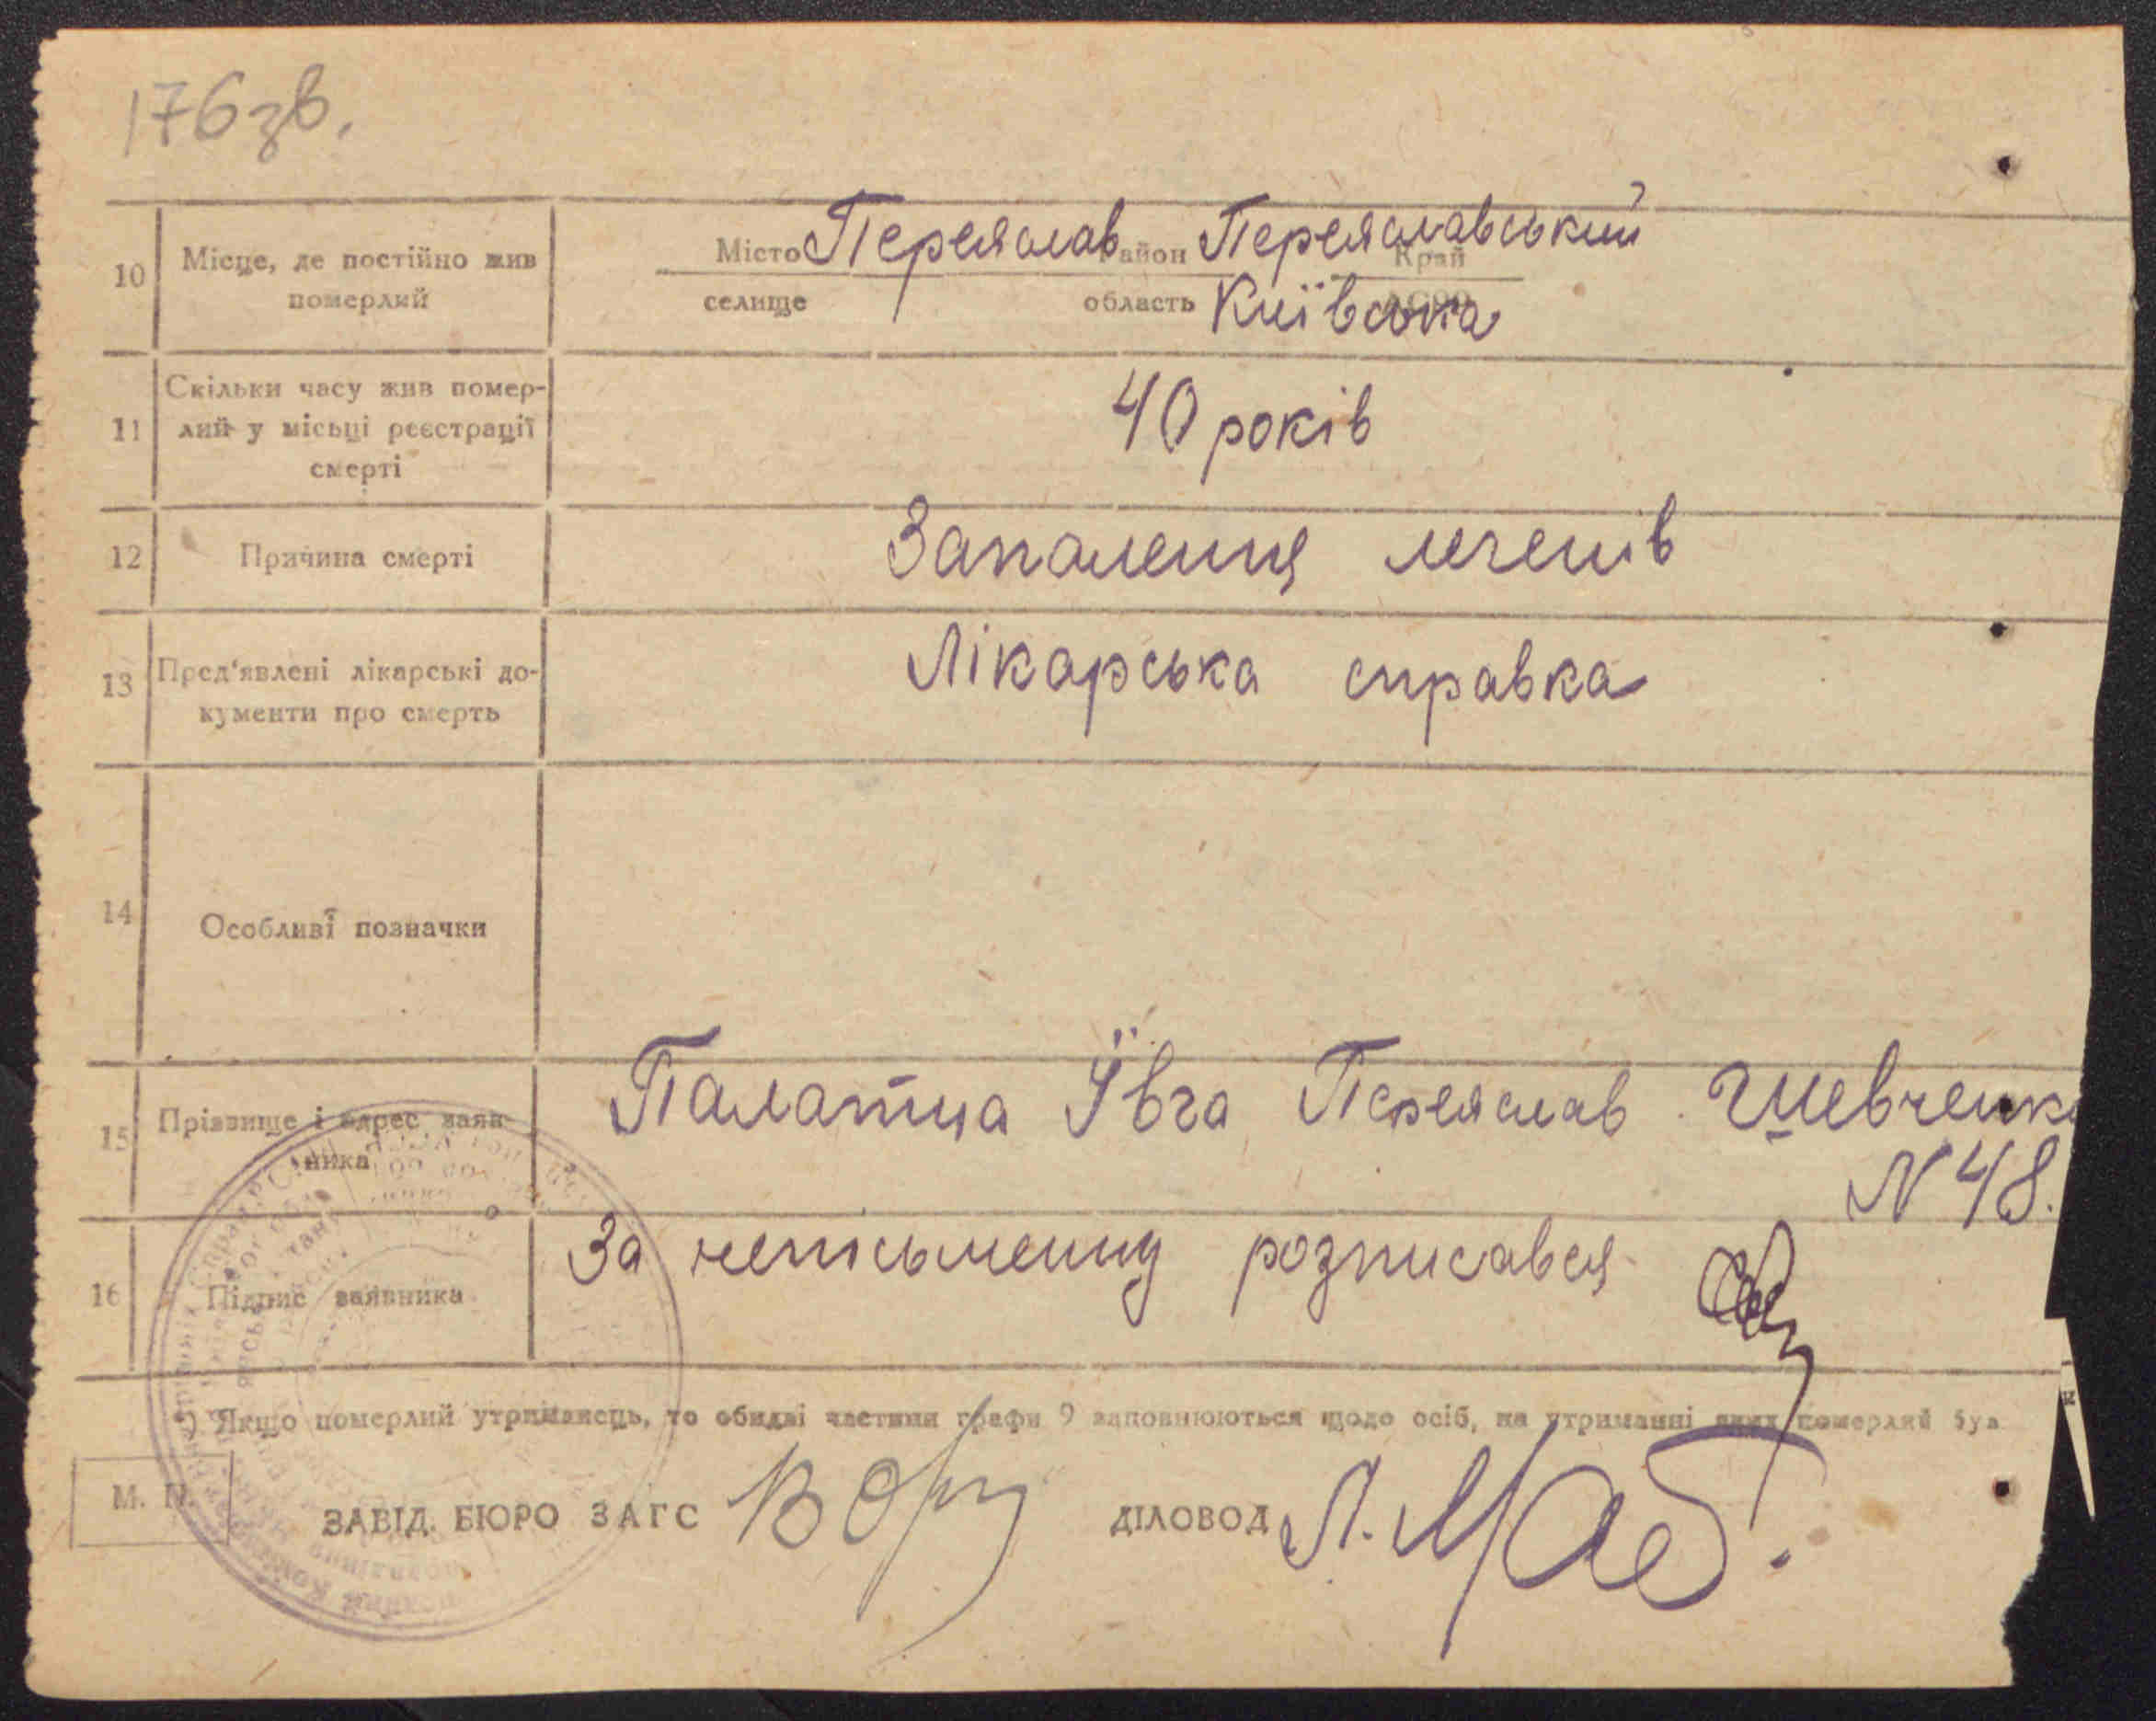 176 зв.
10 Місце, де постійно жив
померлий
Місто Переяслав район Переяславський
Край
селище область Київська
АСРР
11 Скільки часу жив помер-
лий у місьці реєстрації
смерті
40 років
12 Причина смерті
Запалення легенів
13 Пред'явлені лікарські до-
кументи про смерть
Лікарська справка
14 Особливі позначки
15 Прізвище і адрес заяв-
ника
Палатна Ївга Переяслав Шевченко
N 48.
16 Підпис заявника
За неписьменну розписався
*) Якщо померлий утриманець, то обидві частини графи 9 заповнюються щодо осіб, на утриманні яких померлий був
М. П.
ЗАВІД. БЮРО ЗАГС
ДІЛОВОД